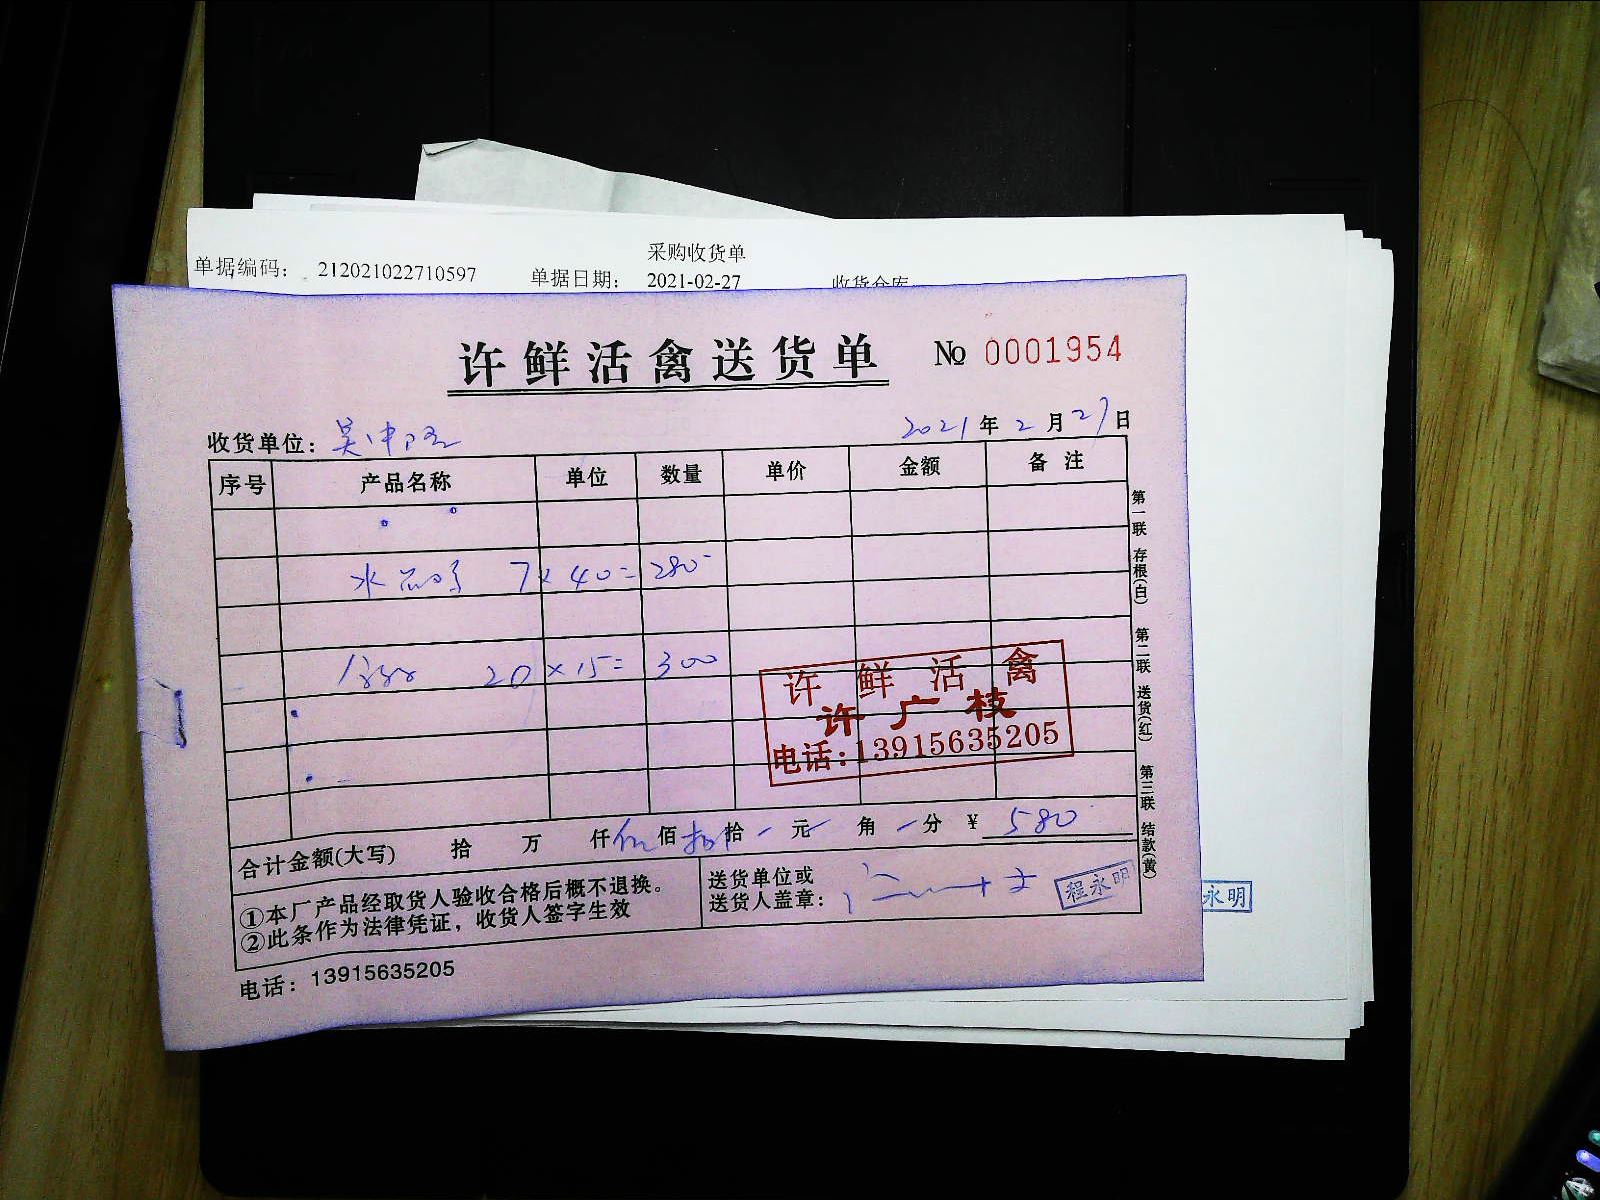 采购收货单
单据编码： 212021022710597 单据日期： 2021-02-27 收货仓库
许鲜活禽送货单 № 0001954
收货单位： 吴中 2021 年 2 月 27 日
序号 产品名称 单位 数量 单价 金额 备 注
水 7 × 40 = 280
20 × 15 = 300
许鲜活禽
许广枝
电话：13915635205
合计金额(大写) 拾 万 仟 伍 佰 捌 拾 元 角 分 ¥ 580
①本厂产品经取货人验收合格后概不退换。
②此条作为法律凭证，收货人签字生效
送货单位或
送货人盖章：
程永明
永明
电话：13915635205
第一联 存根(白) 第二联 送货(红) 第三联 结款(黄)